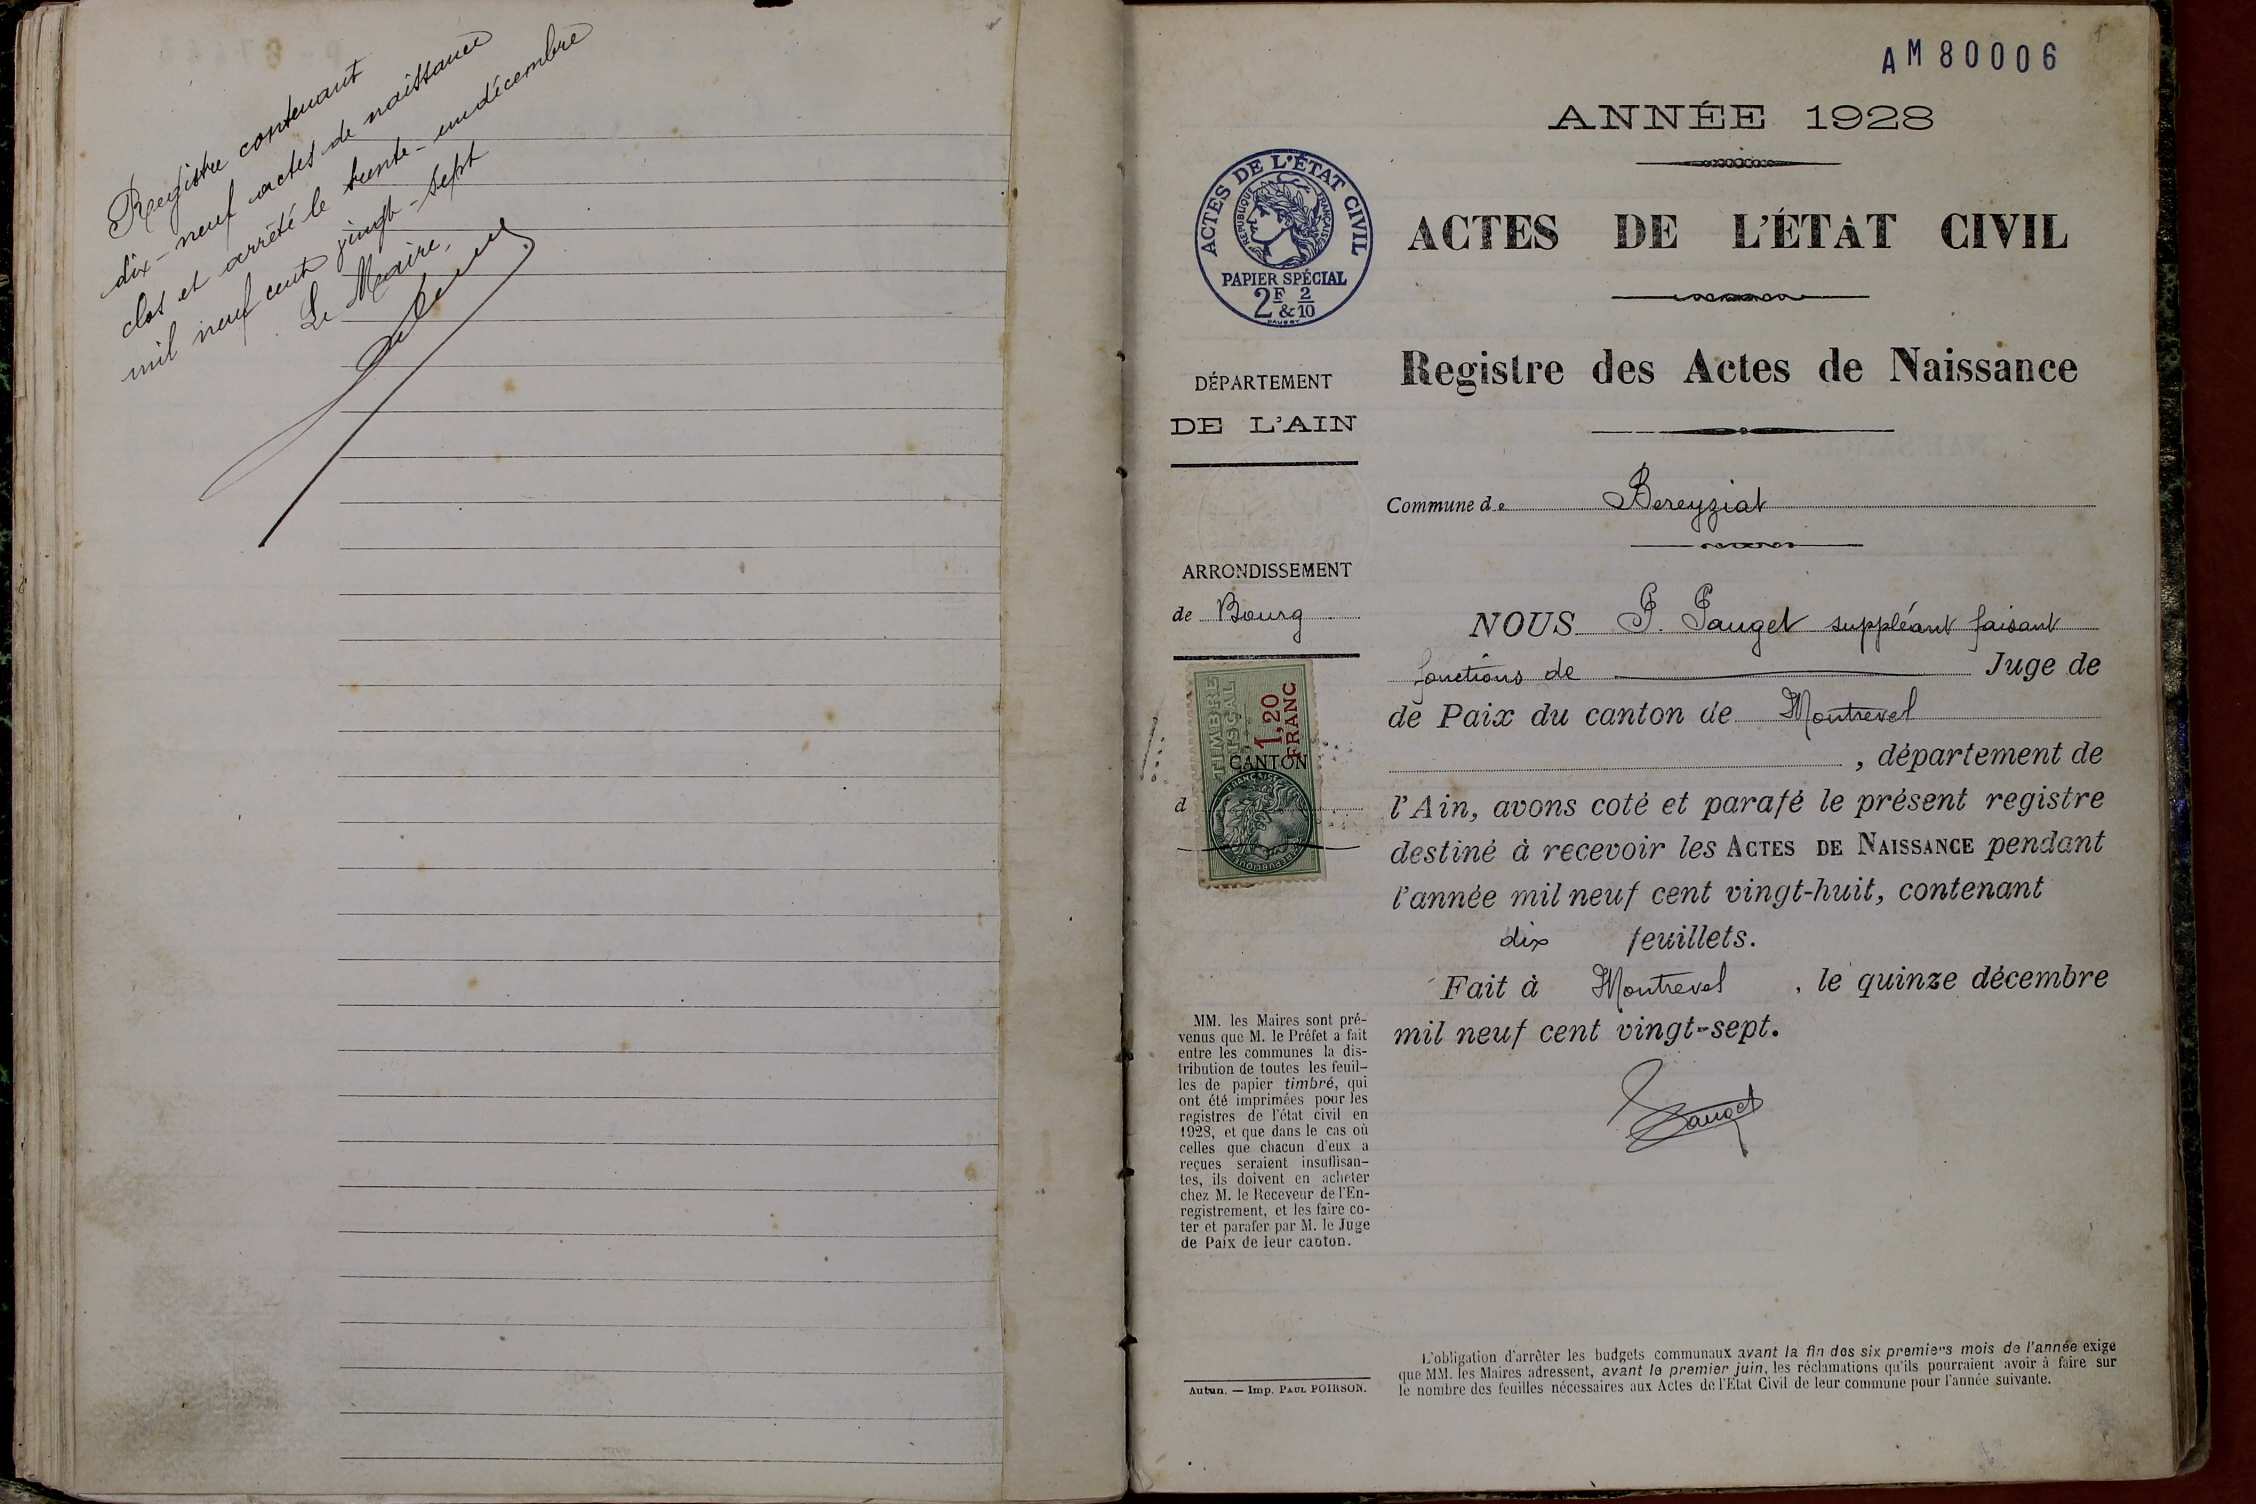 Registre contenant
dix-neuf actes de naissance
clos et arrêté le trente-un décembre
mil neuf cent vingt-sept
Le Maire,
AM 80006
ANNÉE 1928
ACTES DE L'ÉTAT CIVIL
REPUBLIQUE FRANÇAISE
PAPIER SPÉCIAL
2F & 2/10
ACTES DE L'ÉTAT CIVIL
Registre des Actes de Naissance
DÉPARTEMENT
DE L'AIN
Commune de Bereyziat
ARRONDISSEMENT
de Bourg
TIMBRE
FISCAL
1,20
FRANC
CANTON
d
NOUS P. Pauget suppléant faisant
fonctions de Juge de
de Paix du canton de Montrevel
, département de
l'Ain, avons coté et parafé le présent registre
destiné à recevoir les ACTES DE NAISSANCE pendant
l'année mil neuf cent vingt-huit, contenant
dix feuillets.
Fait à Montrevel , le quinze décembre
mil neuf cent vingt-sept.
Pauget
MM. les Maires sont pré-
venus que M. le Préfet a fait
entre les communes la dis-
tribution de toutes les feuil-
les de papier timbré, qui
ont été imprimées pour les
registres de l'état civil en
1928, et que dans le cas où
celles que chacun d'eux a
reçues seraient insuffisan-
tes, ils doivent en acheter
chez M. le Receveur de l'En-
registrement, et les faire co-
ter et parafer par M. le Juge
de Paix de leur canton.
Autun. — Imp. PAUL POIRSON.
L'obligation d'arrêter les budgets communaux avant la fin des six premiers mois de l'année exige
que MM. les Maires adressent, avant le premier juin, les réclamations qu'ils pourraient avoir à faire sur
le nombre des feuilles nécessaires aux Actes de l'Etat Civil de leur commune pour l'année suivante.